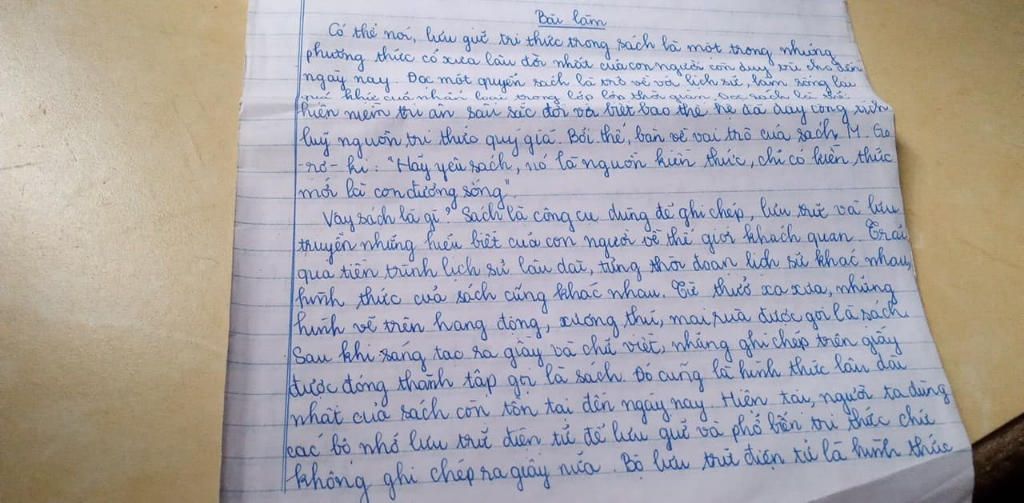 Bài làm
Có thể nói, lưu giữ tri thức trong sách là một trong những
phương thức cổ xưa lâu đời nhất của con người còn duy trì cho đến
ngày nay. Đọc một quyển sách là trở về với lịch sử, làm sống lại
quá khứ của nhân loại trong lớp lớp thời gian. Đọc sách là thể
hiện niềm tri ân sâu sắc đối với biết bao thế hệ đã dày công tích
luỹ nguồn tri thức quý giá. Bởi thế, bàn về vai trò của sách M. Go
-rơ-ki: "Hãy yêu sách, nó là nguồn kiến thức, chỉ có kiến thức
mới là con đường sống".
Vậy sách là gì? Sách là công cụ dùng để ghi chép, lưu trữ và lưu
truyền những hiểu biết của con người về thế giới khách quan. Trải
qua tiến trình lịch sử lâu dài, từng thời đoạn lịch sử khác nhau,
hình thức của sách cũng khác nhau. Từ thuở xa xưa, những
hình vẽ trên hang động, xương thú, mai rùa được gọi là sách.
Sau khi sáng tạo ra giấy và chữ viết, những ghi chép trên giấy
được đóng thành tập gọi là sách. Đó cũng là hình thức lâu dài
nhất của sách còn tồn tại đến ngày nay. Hiện tại, người ta dùng
các bộ nhớ lưu trữ điện tử để lưu giữ và phổ biến tri thức chứ
không ghi chép ra giấy nữa. Bộ lưu trữ điện tử là hình thức